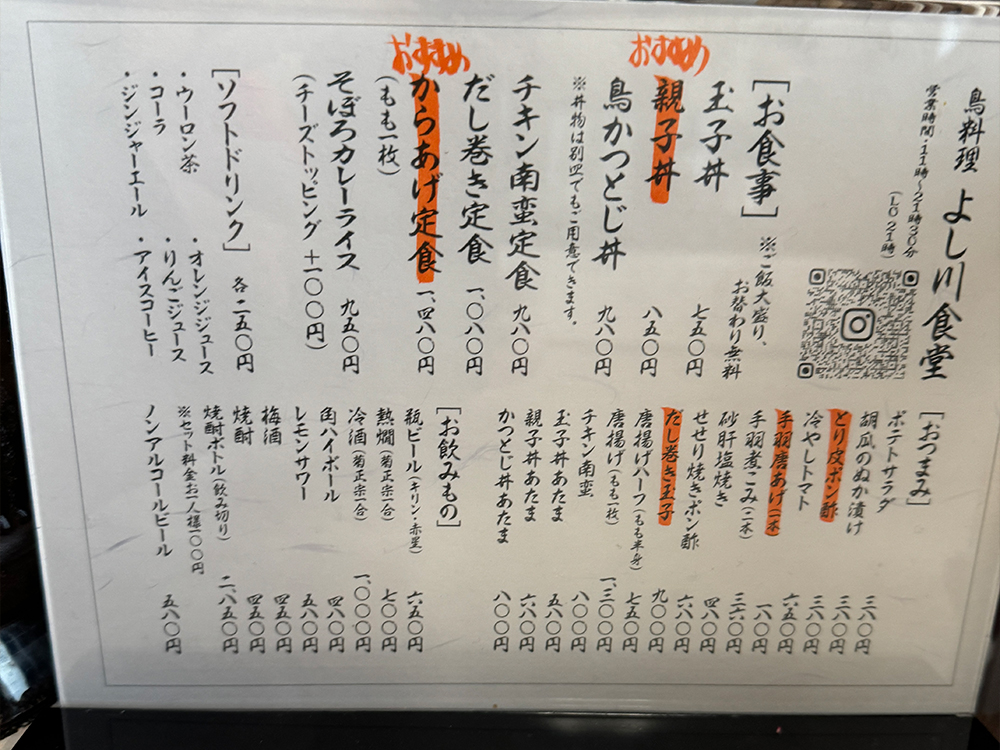 鳥料理 よし川食堂
営業時間・11時〜21時30分
(LO 21時)
[お食事] ※ご飯大盛り、
お替わり無料
玉子丼 七五〇円
おすすめ
親子丼 八五〇円
鳥かつとじ丼 九八〇円
※丼物は別皿でもご用意できます。
チキン南蛮定食 九八〇円
だし巻き定食 一、〇八〇円
おすすめ
からあげ定食 一、四八〇円
(もも一枚)
そぼろカレーライス 九五〇円
(チーズトッピング +一〇〇円)
[ソフトドリンク] 各二五〇円
・ウーロン茶 ・オレンジジュース
・コーラ ・りんごジュース
・ジンジャーエール ・アイスコーヒー
[おつまみ]
ポテトサラダ 三八〇円
胡瓜のぬか漬け 三八〇円
とり皮ポン酢 三八〇円
冷やしトマト 六五〇円
手羽唐あげ(一本) 一八〇円
手羽煮こみ(二本) 三六〇円
砂肝塩焼き 四八〇円
せせり焼きポン酢 六八〇円
だし巻き玉子 九〇〇円
唐揚げハーフ(もも半身) 七五〇円
唐揚げ(もも一枚) 一、三〇〇円
チキン南蛮 八〇〇円
玉子丼あたま 五八〇円
親子丼あたま 六八〇円
かつとじ丼あたま 八〇〇円
[お飲みもの]
瓶ビール(キリン・赤星) 六五〇円
熱燗(菊正宗一合) 七〇〇円
冷酒(菊正宗一合) 一、〇〇〇円
角ハイボール 四八〇円
レモンサワー 五八〇円
梅酒 四五〇円
焼酎 四五〇円
焼酎ボトル(飲み切り) 二、八五〇円
※セット料金お一人様一〇〇円
ノンアルコールビール 五八〇円